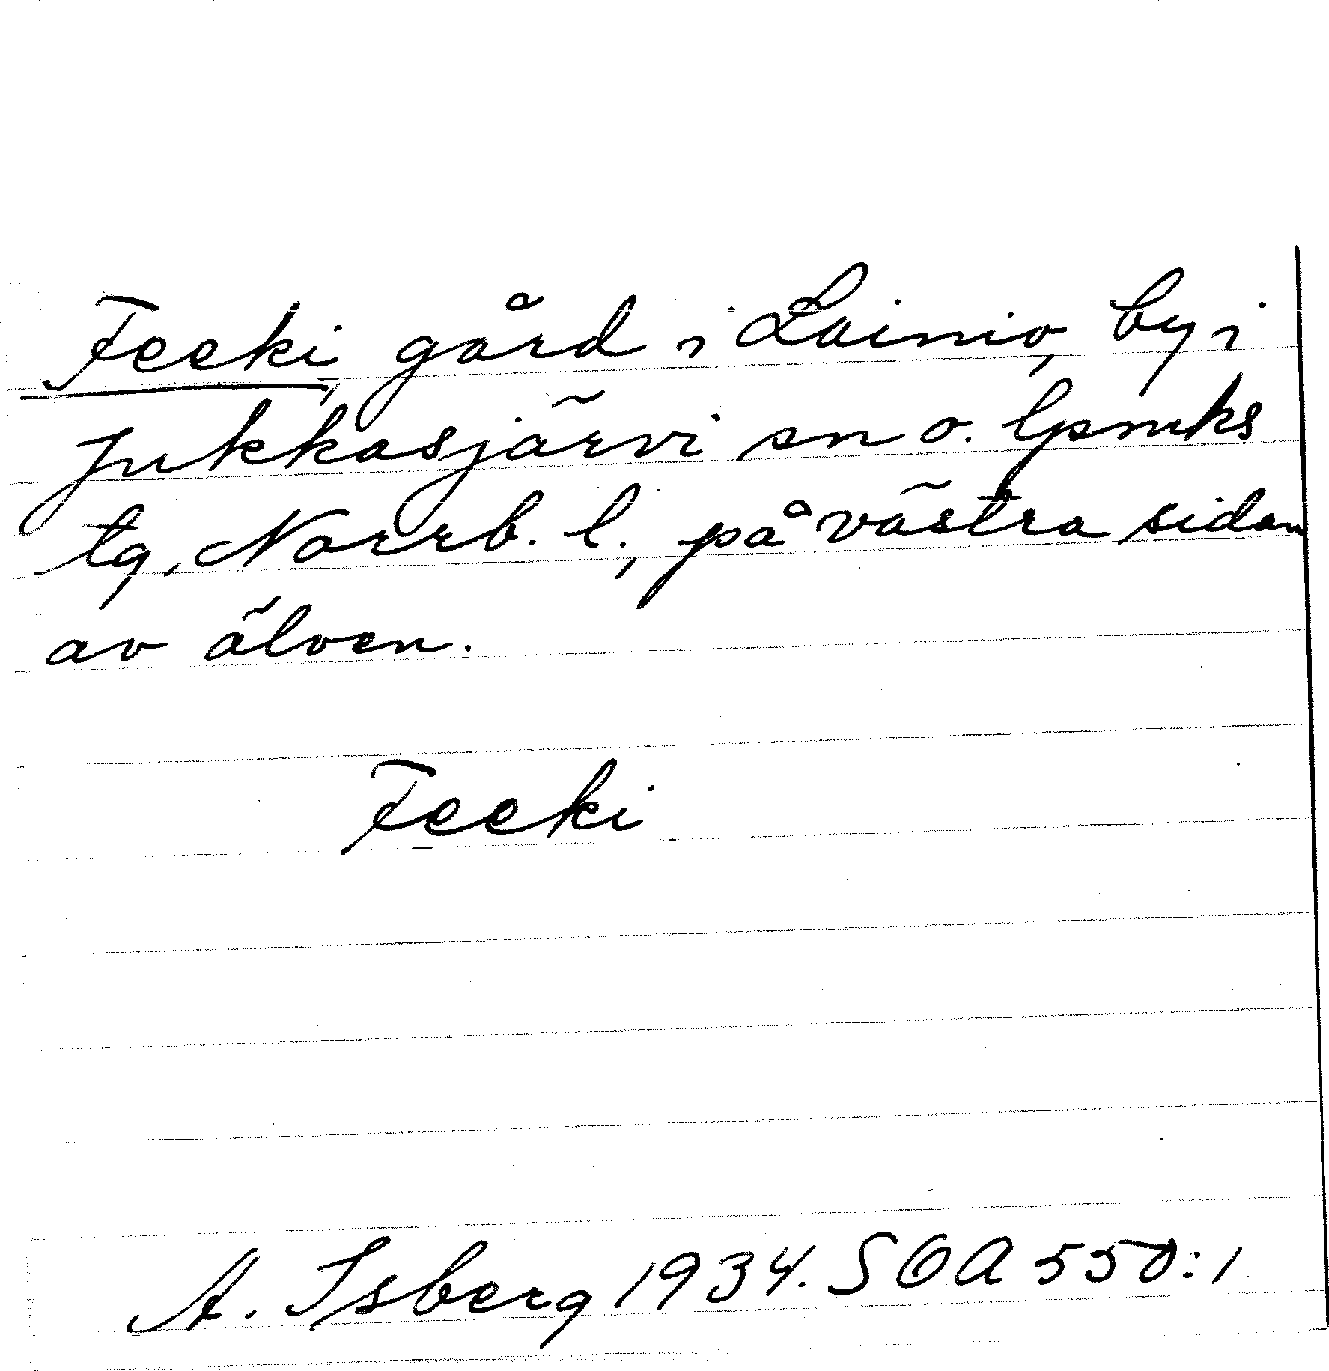 Feeki, gård i Lainio, by i
Jukkasjärvi sn o. lpmks
tg, Norrb. l., på västra sidan
av älven.
Feeki
A. Isberg 1934. SOA 550:1